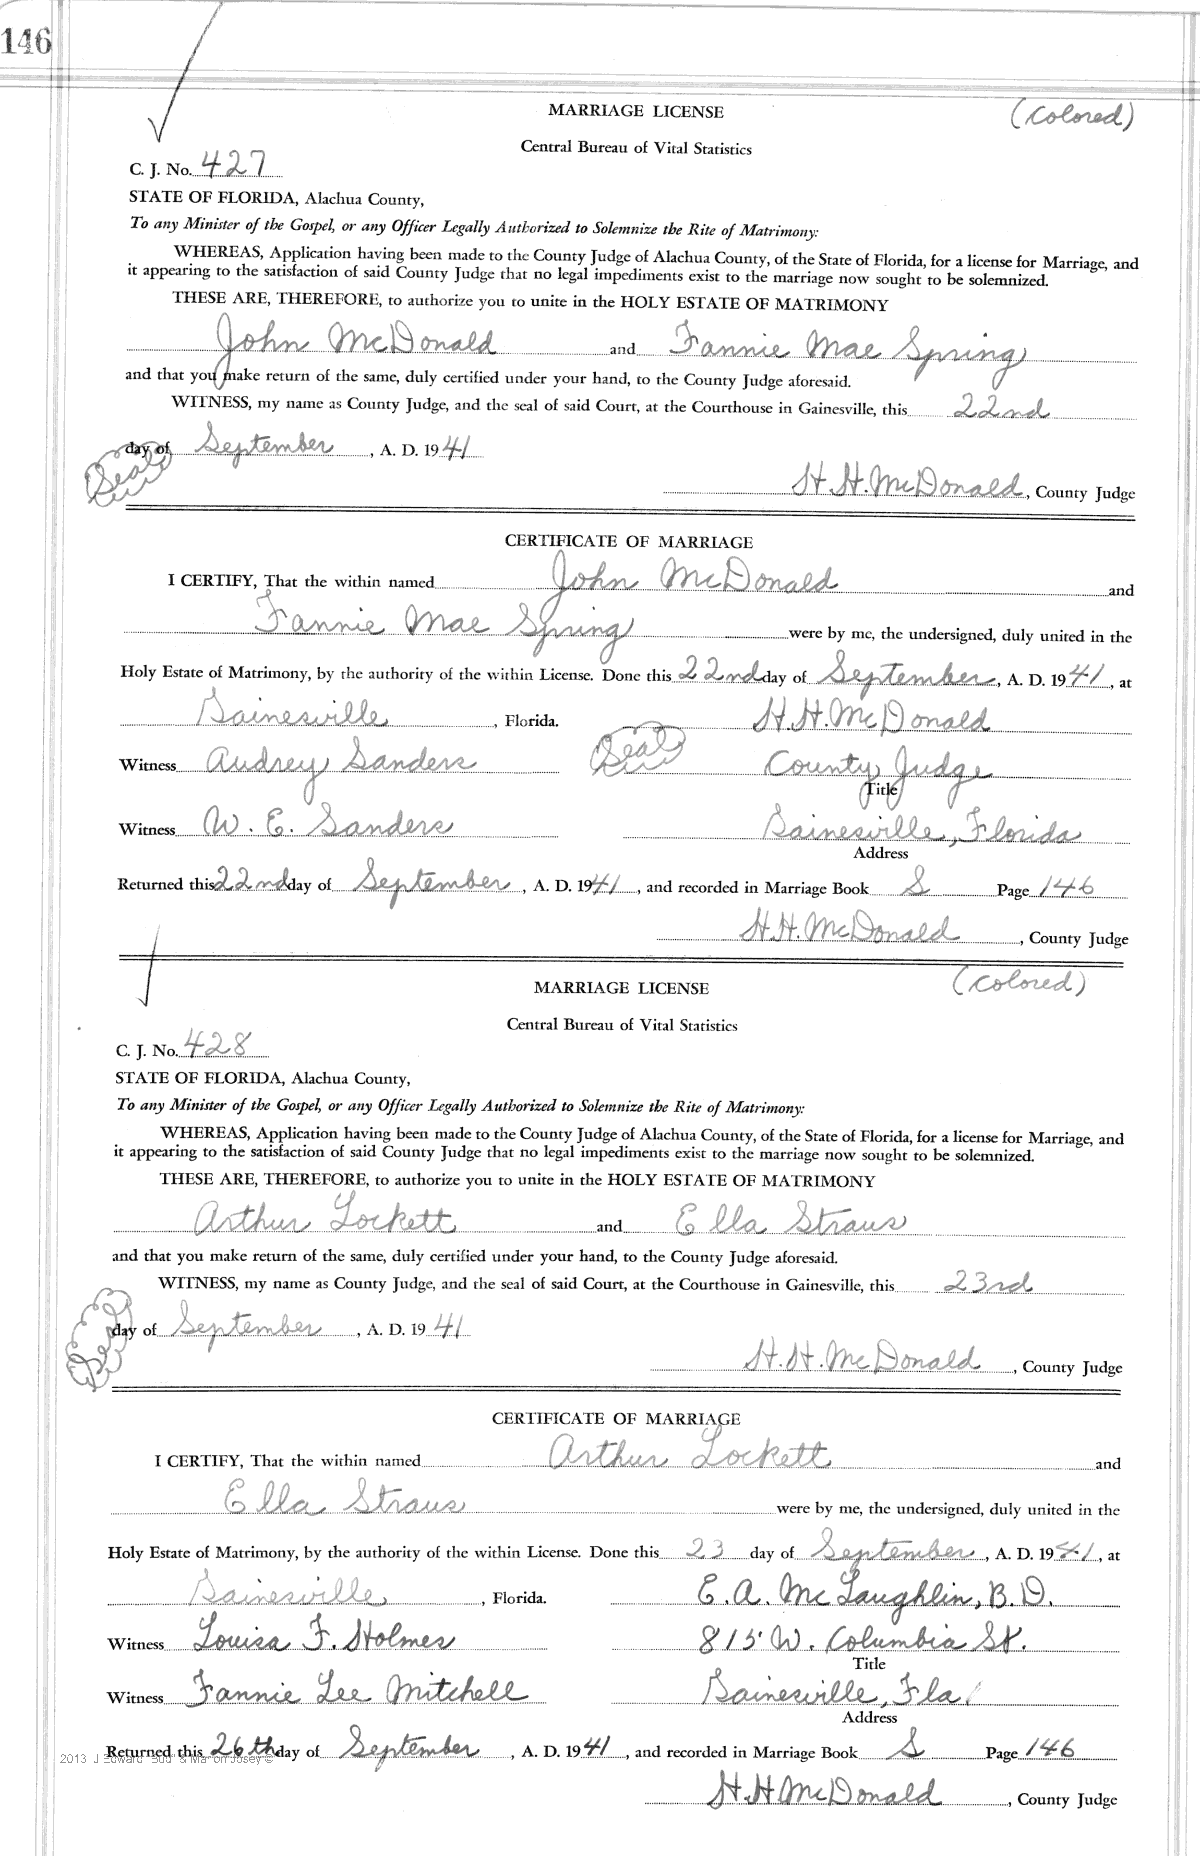 146
MARRIAGE LICENSE (Colored)
Central Bureau of Vital Statistics
C. J. No. 427
STATE OF FLORIDA, Alachua County,
To any Minister of the Gospel, or any Officer Legally Authorized to Solemnize the Rite of Matrimony:
WHEREAS, Application having been made to the County Judge of Alachua County, of the State of Florida, for a license for Marriage, and
it appearing to the satisfaction of said County Judge that no legal impediments exist to the marriage now sought to be solemnized.
THESE ARE, THEREFORE, to authorize you to unite in the HOLY ESTATE OF MATRIMONY
John McDonald and Fannie Mae Spring
and that you make return of the same, duly certified under your hand, to the County Judge aforesaid.
WITNESS, my name as County Judge, and the seal of said Court, at the Courthouse in Gainesville, this 22nd
day of September, A. D. 1941
Seal
H. H. McDonald, County Judge
CERTIFICATE OF MARRIAGE
I CERTIFY, That the within named John McDonald and
Fannie Mae Spring were by me, the undersigned, duly united in the
Holy Estate of Matrimony, by the authority of the within License. Done this 22nd day of September, A. D. 1941, at
Gainesville, Florida. H. H. McDonald
Witness Audrey Sanders Seal County Judge
Title
Witness W. E. Sanders Gainesville, Florida
Address
Returned this 22nd day of September, A. D. 1941, and recorded in Marriage Book S Page 146
H. H. McDonald, County Judge
MARRIAGE LICENSE (Colored)
Central Bureau of Vital Statistics
C. J. No. 428
STATE OF FLORIDA, Alachua County,
To any Minister of the Gospel, or any Officer Legally Authorized to Solemnize the Rite of Matrimony:
WHEREAS, Application having been made to the County Judge of Alachua County, of the State of Florida, for a license for Marriage, and
it appearing to the satisfaction of said County Judge that no legal impediments exist to the marriage now sought to be solemnized.
THESE ARE, THEREFORE, to authorize you to unite in the HOLY ESTATE OF MATRIMONY
Arthur Lockett and Ella Straus
and that you make return of the same, duly certified under your hand, to the County Judge aforesaid.
WITNESS, my name as County Judge, and the seal of said Court, at the Courthouse in Gainesville, this 23rd
day of September, A. D. 1941
Seal
H. H. McDonald, County Judge
CERTIFICATE OF MARRIAGE
I CERTIFY, That the within named Arthur Lockett and
Ella Straus were by me, the undersigned, duly united in the
Holy Estate of Matrimony, by the authority of the within License. Done this 23 day of September, A. D. 1941, at
Gainesville, Florida. E. A. McLaughlin, B. D.
Witness Louisa F. Holmes 815 W. Columbia St.
Title
Witness Fannie Lee Mitchell Gainesville, Fla.
Address
Returned this 26th day of September, A. D. 1941, and recorded in Marriage Book S Page 146
2013 J Edward "Bud" & Marion Josey ©
H. H McDonald, County Judge